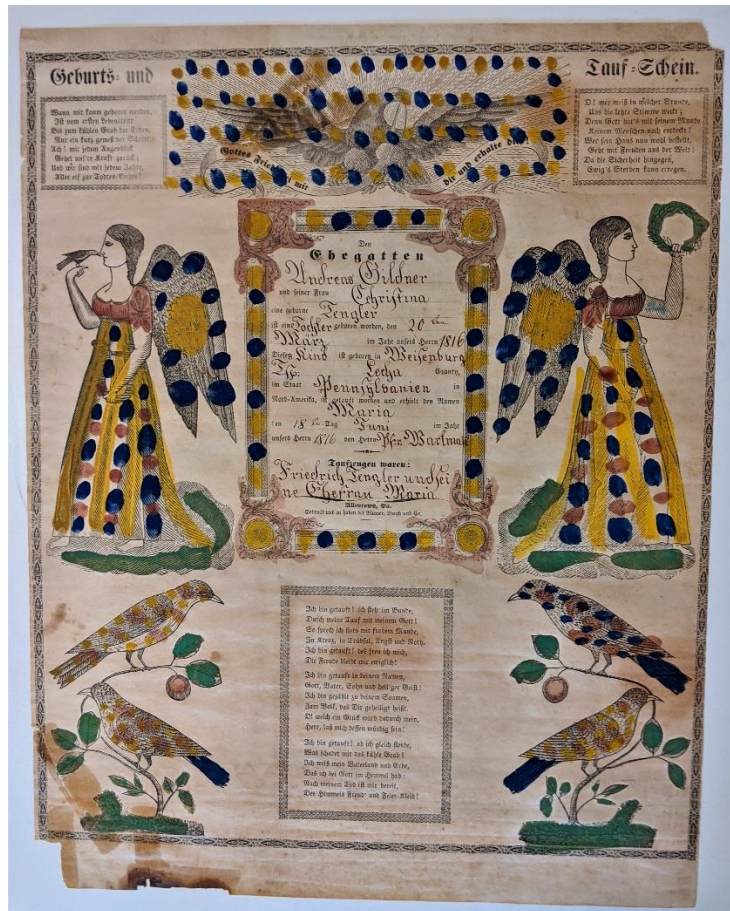 Geburts- und
Tauf-Schein.
Wann wir kaum geboren werden,
Ist vom ersten Lebenstritt
Bis zum kühlen Grab der Erden,
Nur ein kurz gemeß'ner Schritt.
Ach! mit jedem Augenblick
Gehet unsre Kraft zurück;
Und wir sind mit jedem Jahre,
Aller reif zur Todten-Bahre.
Gottes Friede mit
dir und erhalte dich!
O! wer weiß in welcher Stunde,
Uns die letzte Stimme weckt;
Denn Gott hat's mit seinem Munde
Keinem Menschen noch entdeckt!
Wer sein Haus nun wohl bestellt,
Geht mit Freuden aus der Welt:
Da die Sicherheit hingegen,
Ewig's Sterben kann erregen.
Den
Ehegatten
Andreas Gildner
und seiner Frau Christina
eine geborne Zengler
ist eine Tochter geboren worden, den 20 ten
März im Jahr unsers Herrn 1816
Dieses Kind ist geboren in Weisenburg
Tsp: Lecha County,
im Staat Pennsylvanien in
Nord-Amerika, ist getauft worden und erhielt den Namen
Maria
den 18 ten Tag Juni im Jahr
unsers Herrn 1816 von Herrn Pfr: Wartman
Taufzeugen waren:
Friedrich Zengler und sei
ne Ehefrau Maria
Allentown, Pa.
Gedruckt und zu haben bei Blumer, Busch und Co.
Ich bin getauft! ich steh' im Bunde,
Durch meine Tauf mit meinem Gott!
So sprech ich stets mit frohem Munde,
In Kreuz, in Trübsal, Angst und Noth.
Ich bin getauft! deß freu ich mich,
Die Freude bleibt mir ewiglich!
Ich bin getauft in deinem Namen,
Gott, Vater, Sohn und heil'ger Geist!
Ich bin gezählt zu deinem Saamen,
Zum Volk, das Dir geheiligt heißt.
O! welch ein Glück ward dadurch mein,
Herr, laß mich dessen würdig sein!
Ich bin getauft! ob ich gleich sterbe,
Was schadet mir das kühle Grab!
Ich weiß mein Vaterland und Erbe,
Das ich bei Gott im Himmel hab:
Nach meinem Tod ist mir bereit,
Des Himmels Freud' und Feier-Kleid!